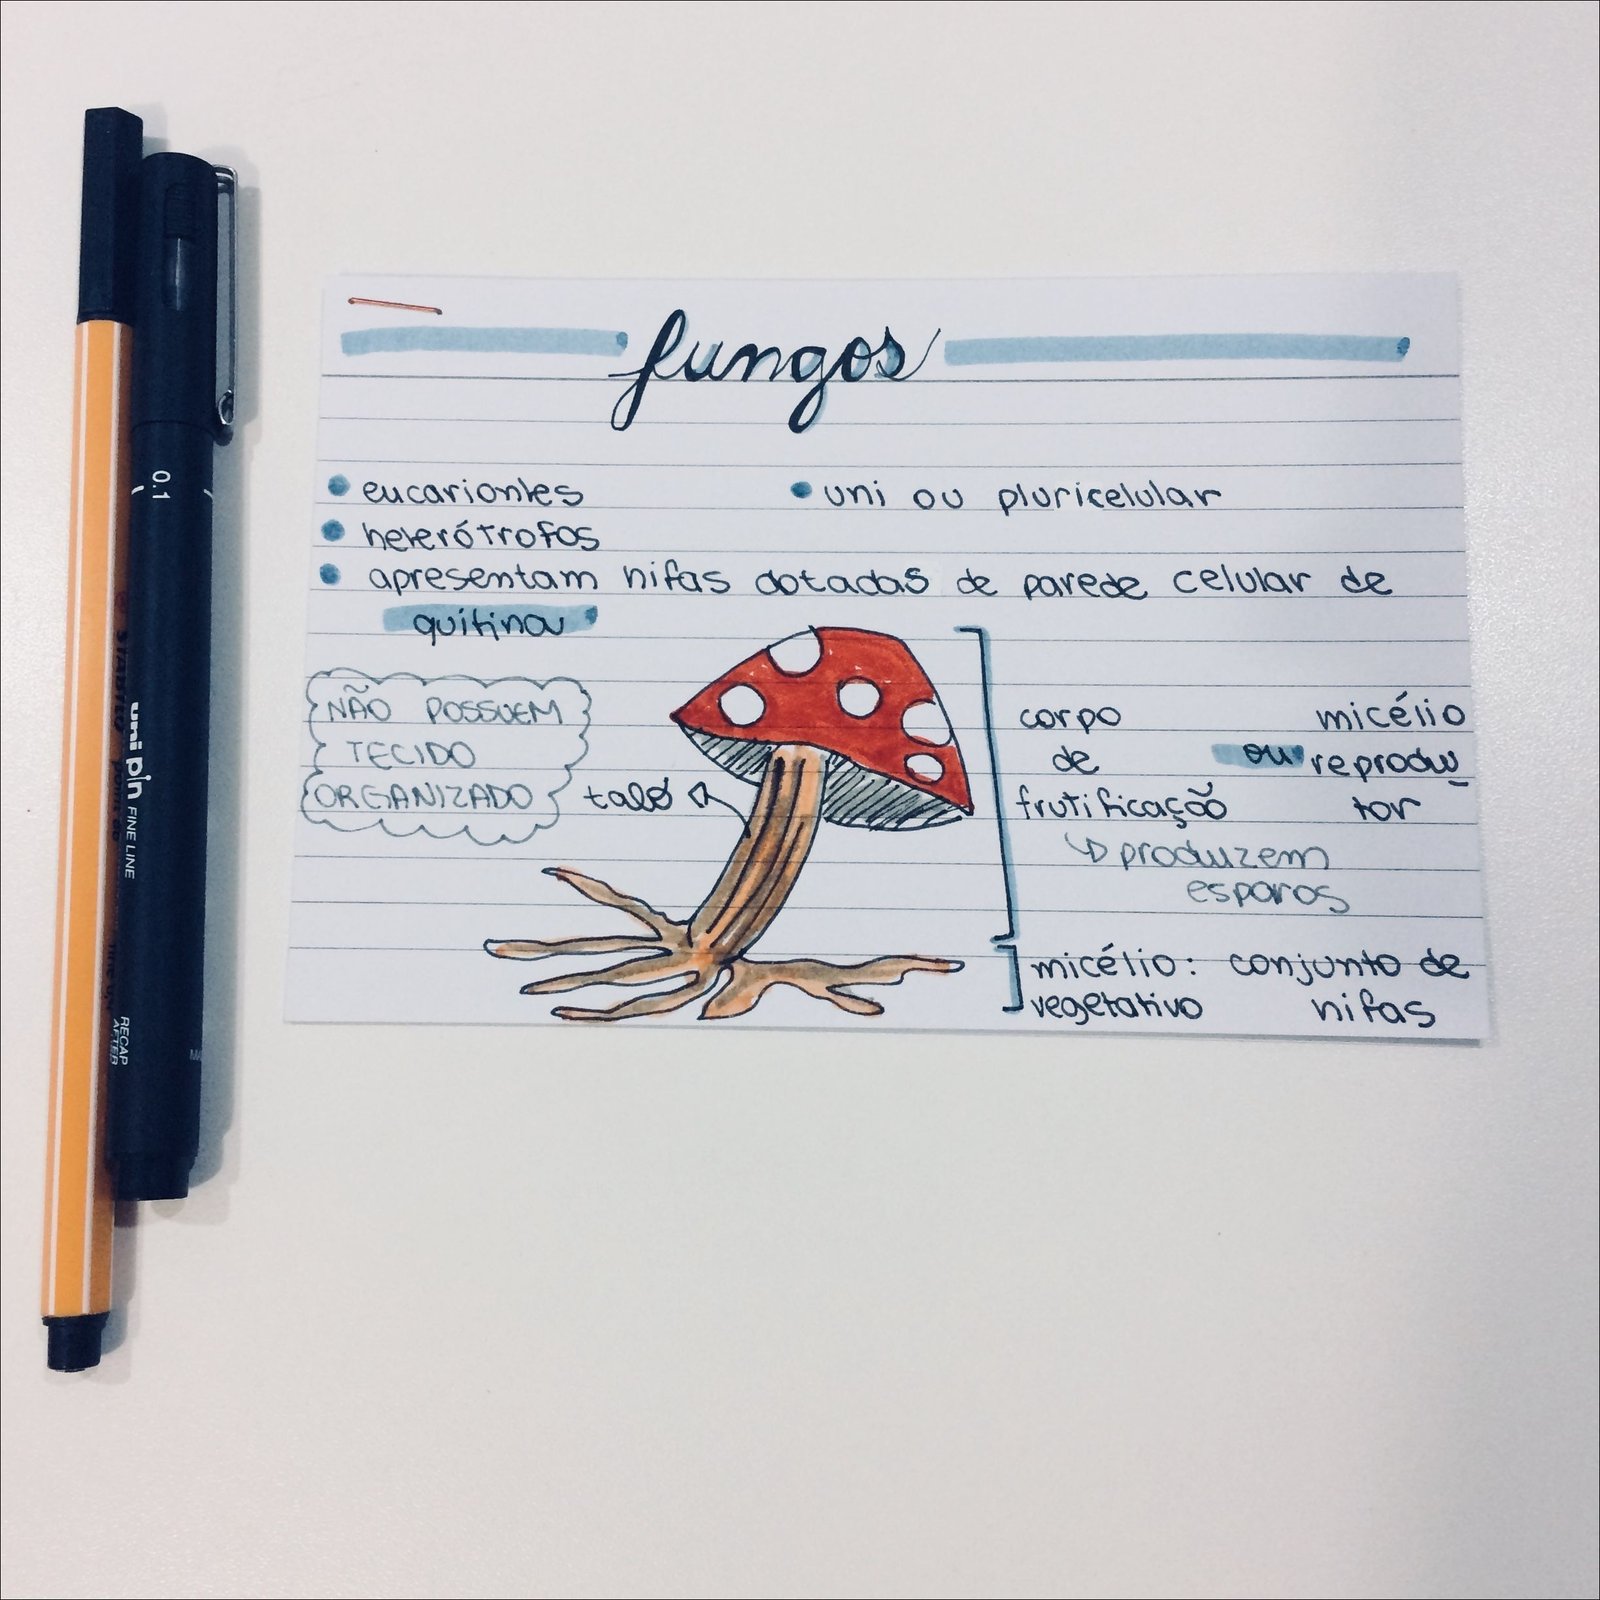 fungos
eucariontes
uni ou pluricelular
heterótrofos
apresentam hifas dotadas de parede celular de
quitina
NÃO POSSUEM
TECIDO
ORGANIZADO
talo
corpo
de
frutificação
ou
micélio
reprodu
tor
produzem
esporos
micélio: conjunto de
vegetativo hifas
0.1
uni pin FINE LINE
RECAP
AFTER
STABILO point 88